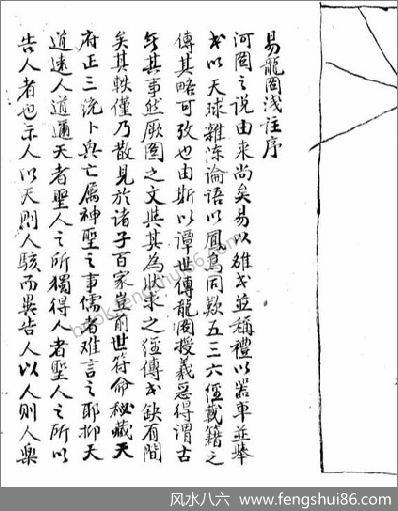 易龍圖淺註序
河圖之說由來尚矣易以雒书並稱禮以器車並舉
书以天球雜陳论語以鳳鳥同歎五三六經載籍之
傳其略可攷也由斯以譚世傳龍圖授羲惡得謂古
无其事然厥圖之文與其為狀求之經傳书缺有間
矣其軼僅乃散見於诸子百家豈前世符命秘藏天
府正三卜與亡屬神聖之事儒者难言之耶抑天
道遠人道邇天者聖人之所獨得人者聖人之所以
告人者也示人以天則人駭而異告人以人則人樂
book.fengshui86.com
风水八六：www.fengshui86.com